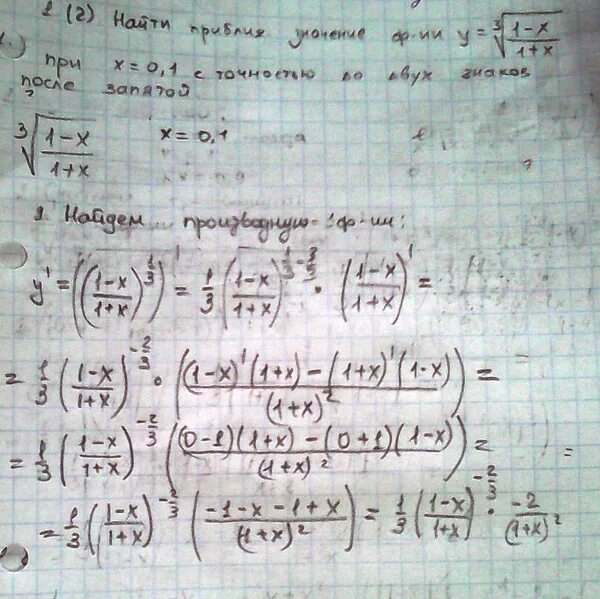 1 (2) Найти приближ значение ф-ии y = ∛((1-x)/(1+x))
при x = 0,1 с точностью до двух знаков
после запятой
∛((1-x)/(1+x)) x = 0,1
1 Найдем производную ф-ии:
y' = (((1-x)/(1+x))^(1/3))' = 1/3 ((1-x)/(1+x))^(1/3 - 3/3) · ((1-x)/(1+x))' =
= 1/3 ((1-x)/(1+x))^(-2/3) · (((1-x)'(1+x) - (1+x)'(1-x))/(1+x)^2) =
= 1/3 ((1-x)/(1+x))^(-2/3) (((0-1)(1+x) - (0+1)(1-x))/(1+x)^2) =
= 1/3 ((1-x)/(1+x))^(-2/3) ((-1-x-1+x)/(1+x)^2) = 1/3 ((1-x)/(1+x))^(-2/3) · -2/(1+x)^2